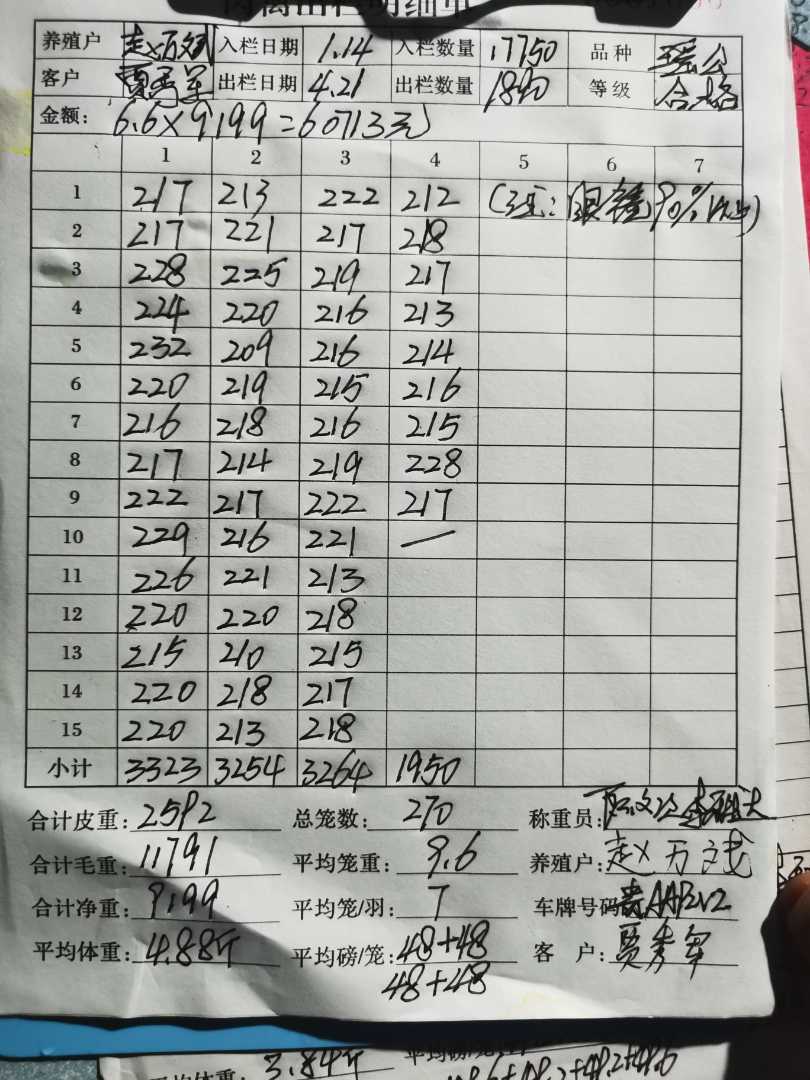 肉禽出栏明细单
养殖户 赵 万斌 入栏日期 1.14 入栏数量 17750 品种
客户 贾秀军 出栏日期 4.21 出栏数量 等级 合格
金额: 6.6×9199=60713元
1 2 3 4 5 6 7
1 217 213 222 212
2 217 221 217 218
3 228 225 219 217
4 224 220 216 213
5 232 209 216 214
6 220 219 215 216
7 216 218 216 215
8 217 214 219 228
9 222 217 222 217
10 229 216 221 —
11 226 221 213
12 220 220 218
13 215 210 215
14 220 218 217
15 220 213 218
小计 3323 3254 3264 1950
合计皮重: 2592 总笼数: 270 称重员:
合计毛重: 11791 平均笼重: 9.6 养殖户:
合计净重: 9199 平均笼/羽: 7 车牌号码
平均体重: 4.88斤 平均磅/笼: 48+48 客 户: 贾秀军
48+48
平均体重: 3.84斤